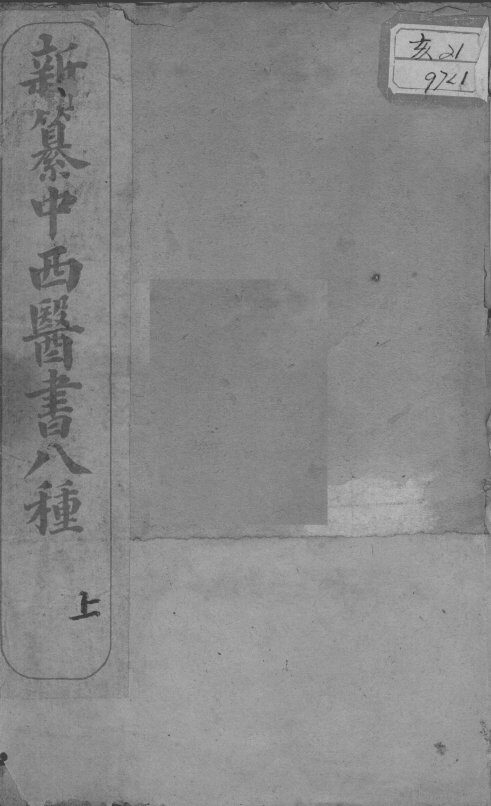 新纂中西醫書八種
上
亥 21
9721